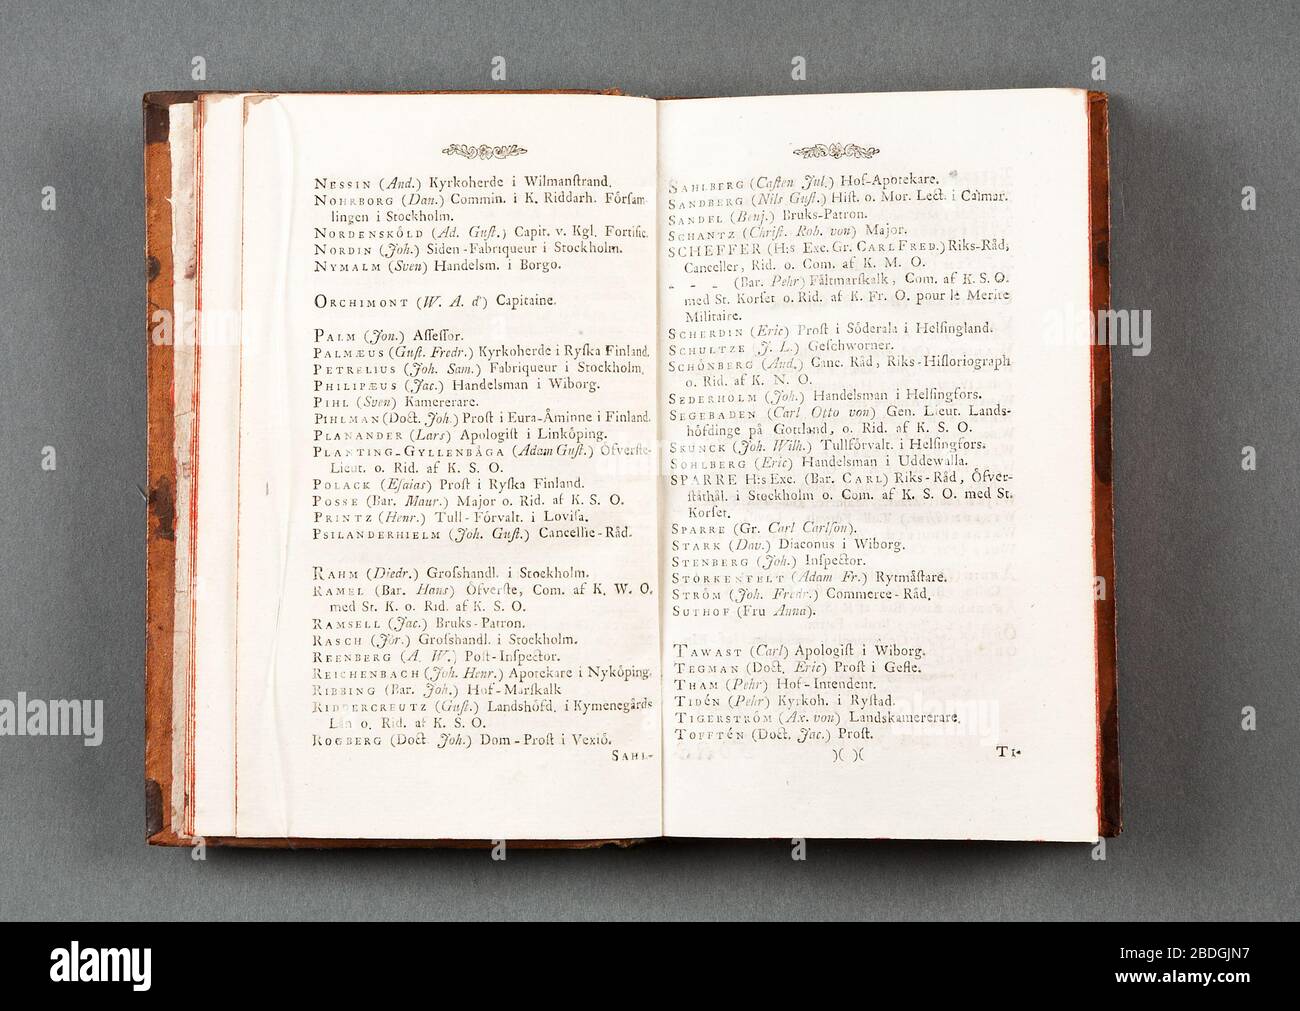 NESSIN (And.) Kyrkoherde i Wilmanſtrand.
NOHRBORG (Dan.) Commin. i K. Riddarh. Förſam-
lingen i Stockholm.
NORDENSKÖLD (Ad. Guſt.) Capit. v. Kgl. Fortific.
NORDIN (Joh.) Siden-Fabriqueur i Stockholm.
NYMALM (Sven) Handelsm. i Borgo.
ORCHIMONT (W. A. d') Capitaine.
PALM (Jon.) Aſſeſſor.
PALMÆUS (Guſt. Fredr.) Kyrkoherde i Ryſka Finland.
PETRELIUS (Joh. Sam.) Fabriqueur i Stockholm.
PHILIPÆUS (Jac.) Handelsman i Wiborg.
PIHL (Sven) Kamererare.
PIHLMAN (Doct. Joh.) Proſt i Eura-Åminne i Finland.
PLANANDER (Lars) Apologiſt i Linköping.
PLANTING-GYLLENBÅGA (Adam Guſt.) Öfverſte-
Lieut. o. Rid. af K. S. O.
POLACK (Eſaias) Proſt i Ryſka Finland.
POSSE (Bar. Maur.) Major o. Rid. af K. S. O.
PRINTZ (Henr.) Tull-Förvalt. i Loviſa.
PSILANDERHIELM (Joh. Guſt.) Cancellie-Råd.
RAHM (Diedr.) Groſshandl. i Stockholm.
RAMEL (Bar. Hans) Öfverſte, Com. af K. W. O.
med St. K. o. Rid. af K. S. O.
RAMSELL (Jac.) Bruks-Patron.
RASCH (Jör.) Groſshandl. i Stockholm.
REENBERG (A. W.) Poſt-Inſpector.
REICHENBACH (Joh. Henr.) Apotekare i Nyköping.
RIBBING (Bar. Joh.) Hof-Marſkalk
RIDDERCREUTZ (Guſt.) Landshöfd. i Kymenegårds
Län o. Rid. af K. S. O.
ROGBERG (Doct. Joh.) Dom-Proſt i Vexiö.
SAHL-
SAHLBERG (Caſten Jul.) Hof-Apotekare.
SANDBERG (Nils Guſt.) Hiſt. o. Mor. Lect. i Calmar.
SANDEL (Benj.) Bruks-Patron.
SCHANTZ (Chriſt. Rob. von) Major.
SCHEFFER (H:s Exc. Gr. CARL FRED.) Riks-Råd,
Canceller, Rid. o. Com. af K. M. O.
- - - (Bar. Pehr) Fältmarſkalk, Com. af K. S. O.
med St. Korſet o. Rid. af K. Fr. O. pour le Merite
Militaire.
SCHERDIN (Eric) Proſt i Söderala i Helſingland.
SCHULTZE (J. L.) Geſchworner.
SCHÖNBERG (And.) Canc. Råd, Riks-Hiſtoriograph
o. Rid. af K. N. O.
SEDERHOLM (Joh.) Handelsman i Helſingfors.
SEGEBADEN (Carl Otto von) Gen. Lieut. Lands-
höfdinge på Gottland, o. Rid. af K. S. O.
SKUNCK (Joh. Wilh.) Tullförvalt. i Helſingfors.
SOHLBERG (Eric) Handelsman i Uddewalla.
SPARRE H:s Exc. (Bar. CARL) Riks-Råd, Öfver-
ſtåthål. i Stockholm o. Com. af K. S. O. med St.
Korſet.
SPARRE (Gr. Carl Carlſon).
STARK (Dav.) Diaconus i Wiborg.
STENBERG (Joh.) Inſpector.
STÖRKENFELT (Adam Fr.) Rytmäſtare.
STRÖM (Joh. Fredr.) Commerce-Råd.
SUTHOF (Fru Anna).
TAWAST (Carl) Apologiſt i Wiborg.
TEGMAN (Doct. Eric) Proſt i Gefle.
THAM (Pehr) Hof-Intendent.
TIDÉN (Pehr) Kyrkoh. i Ryſtad.
TIGERSTRÖM (Ax. von) Landskamererare.
TOFFTÉN (Doct. Jac.) Proſt.
)( )(
TI-
alamy
Image ID: 2BDGJN7
www.alamy.com